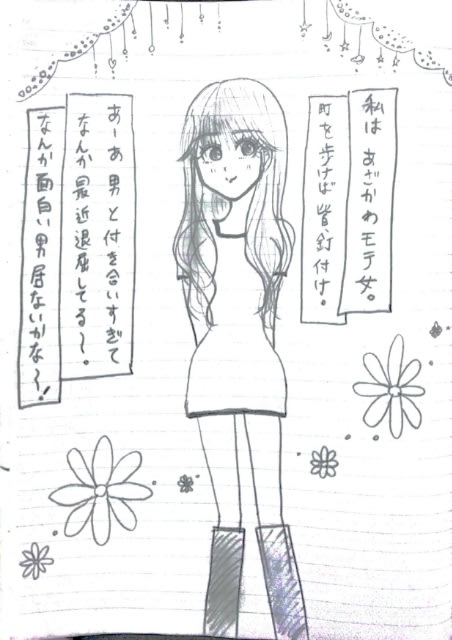 私は あざかわモテ女。
町を歩けば皆、釘付け。
あーあ 男と付き合いすぎて
なんか最近退屈してる〜。
なんか面白い男居ないかな〜!